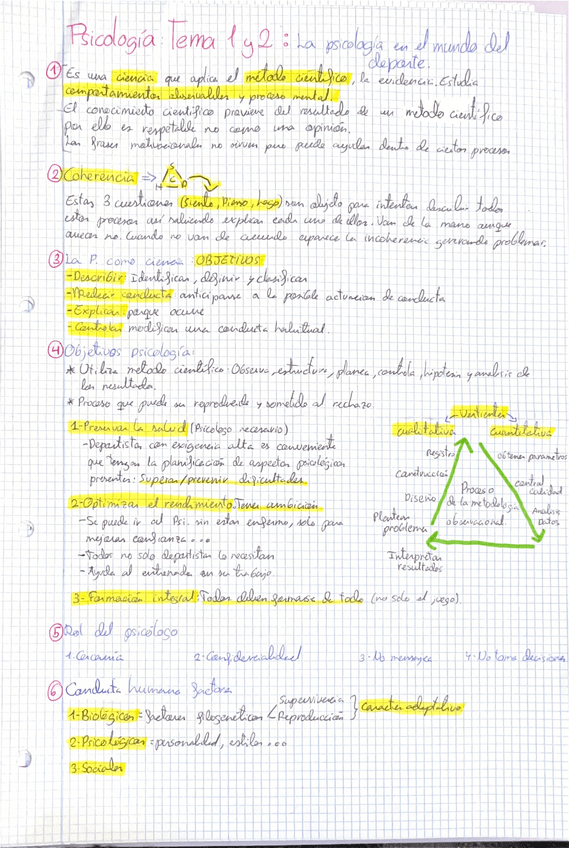 Psicología: Tema 1 y 2: La psicología en el mundo del
deporte.
① Es una ciencia que aplica el método científico, la evidencia. Estudia
comportamientos observables y proceso mental.
El conocimiento científico proviene del resultado de un método científico
por ello es respetable no como una opinión.
Las frases motivacionales no sirven pero puede ayudar dentro de ciertos procesos
② Coherencia ⇒ S C H P
Estas 3 cuestiones (Siento, Pienso, hago) son objeto para intentar todos
estos procesos así sabiendo explicar cada uno de ellos. Van de la mano aunque
a veces no. Cuando no van de acuerdo aparece la incoherencia generando problemas.
③ La P. como ciencia: OBJETIVOS
-Describir Identificar, definir y clasificar
-Predecir conducta anticiparse a la posible actuación de conducta
-Explicar porque ocurre
-Controlar modificar una conducta habitual.
④ Objetivos psicología:
* Utiliza método científico: Observa, estructura, planea, controla, hipótesis y análisis de
los resultados.
* Proceso que puede ser reproducido y sometido al rechazo.
1-Preservar la salud (Psicólogo necesario)
-Deportistas con exigencia alta es conveniente
que tengan la planificación de aspectos psicológicos
presentes: Superar/prevenir dificultades
2-Optimizar el rendimiento. Tener ambición
-Se puede ir al Psi. sin estar enfermo, solo para
mejorar confianza...
-Todos no solo deportistas lo necesitan
-Ayuda al entrenador en su trabajo
3-Formación integral: Todos deben formarse de todo (no solo el juego)
Vertientes
cualitativa cuantitativa
Registro
obtener parámetros
Construcción
control
calidad
Diseño
Proceso
de la metodología
observacional
Análisis
datos
Plantear
problema
Interpretar
resultados
⑤ Rol del psicólogo
1-Cercanía 2-Confidencialidad 3-No mensajes 4-No toma decisiones
⑥ Conducta humana factores
1-Biológicos = factores filogenéticos < Supervivencia
Reproducción } Caracter adaptativo
2-Psicológicos = personalidad, estilos...
3-Sociales